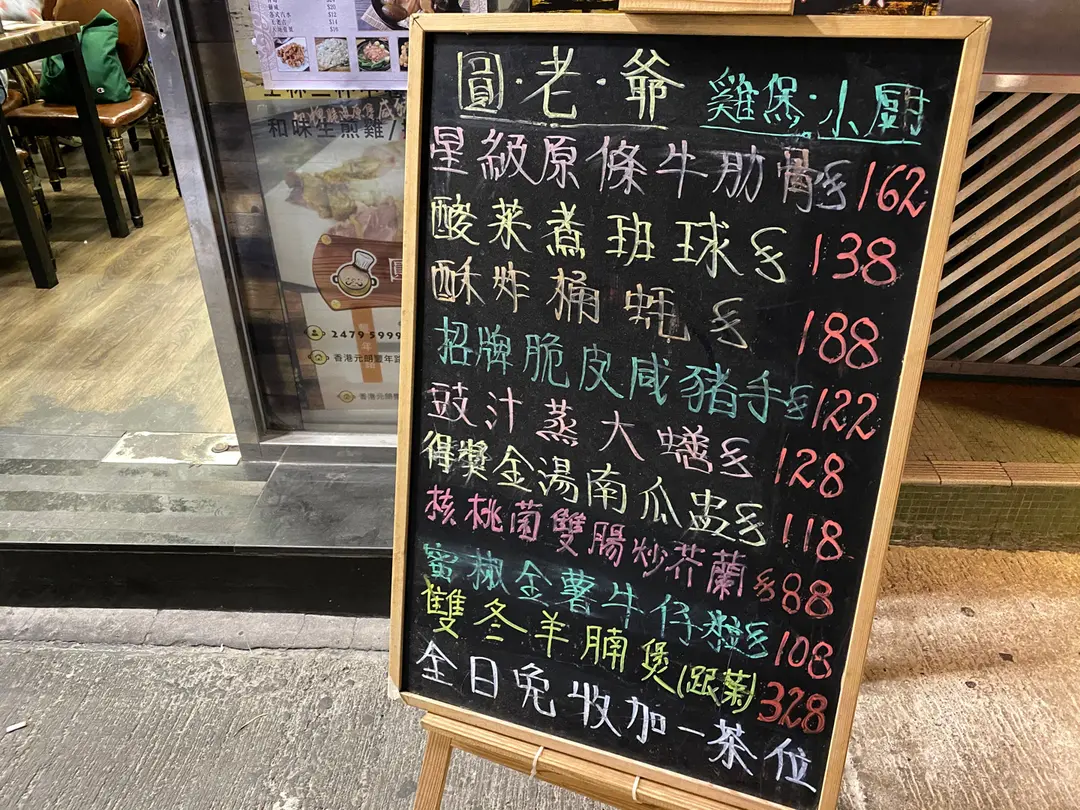 圓·老·爺 雞煲·小廚
星級原條牛肋骨 $162
酸菜煮班球 $138
酥炸桶蚝 $188
招牌脆皮咸豬手 $122
豉汁蒸大鱔 $128
得獎金湯南瓜盅 $118
核桃菌雙腸炒芥蘭 $88
蜜椒金薯牛仔粒 $108
雙冬羊腩煲(跟菜) 328
全日免收加一茶位
和味生煎雞
2479 5999
香港元朗豐年路
香港元朗